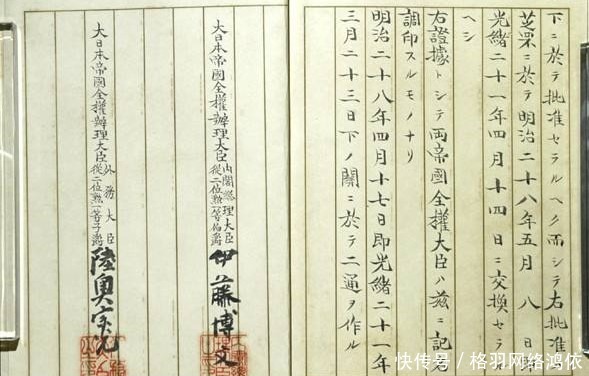 下ニ於テ批准セラルヘク而シテ右批准
芝罘ニ於テ明治二十八年五月八日即
光緒二十一年四月十四日ニ交換セラル
ヘシ
右證據トシテ両帝國全權大臣ハ茲ニ記名
調印スルモノナリ
明治二十八年四月十七日即光緒二十一年
三月二十三日下ノ關ニ於テ二通ヲ作ル
大日本帝國全權辦理大臣內閣總理大臣從二位勲一等伯爵伊藤博文
大日本帝國全權辦理大臣外務大臣從二位勲一等子爵陸奥宗光
快传号／格羽网络鸿依